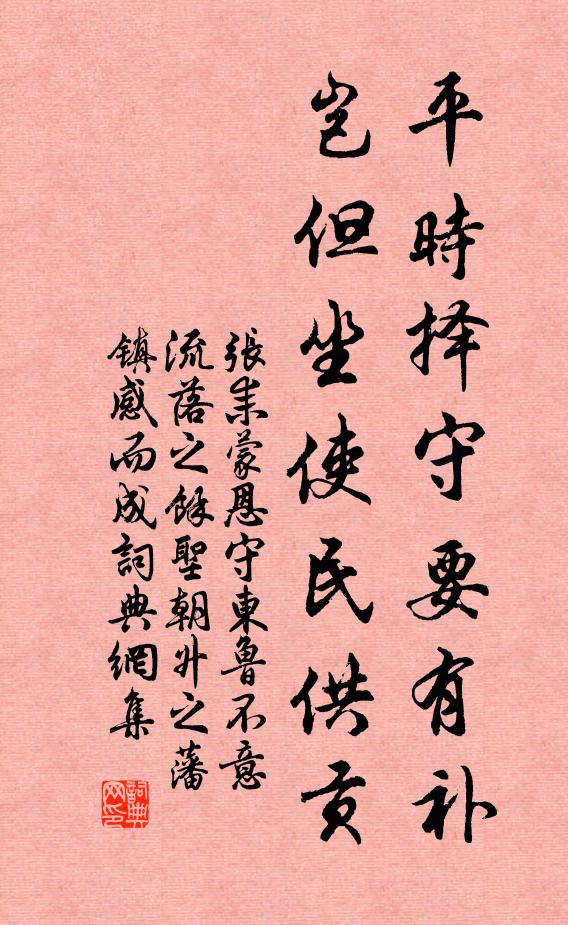 平時择守要有补
岂但坐使民供贡
張耒蒙恩守東魯不意
流落之餘聖朝升之藩
鎮感而成詞典網集
詞典
网印